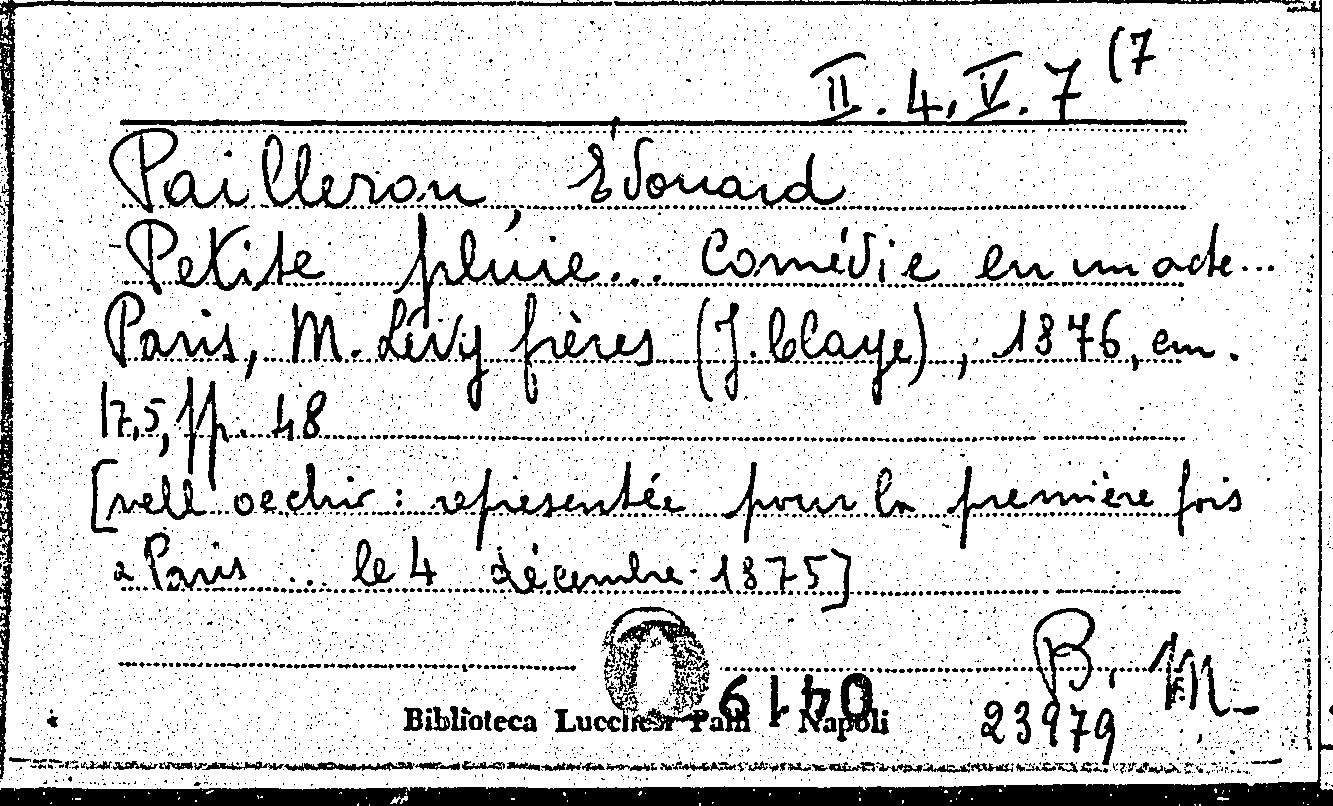 II. 4, V. 7 (7
Pailleron, Édouard
Petite pluie... Comédie en un acte...
Paris, M. Lévy frères (J. Claye), 1876, cm.
17,5, pp. 48
[nell'occhi: representée pour la première fois
a Paris ... le 4 décembre 1875]
B. M.
0419
Biblioteca Lucchesi Palli - Napoli
23979